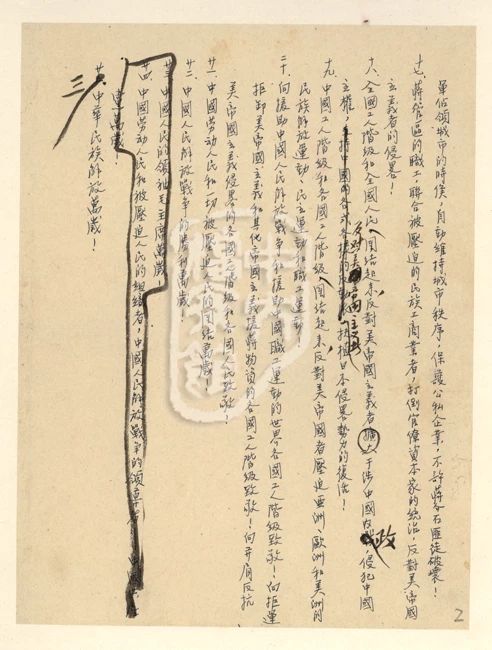 軍佔領城市的時候，自動維持城市秩序，保護公私企業，不許蔣介石匪徒破壞！
十七、蔣管區的職工，聯合被壓迫的民族工商業者，打倒官僚資本家的統治，反對美帝國
主義者的侵略！
十八、全國工人階級和全國人民團結起來，反對美帝國主義者擴大干涉中國內政，侵犯中國
主權，反對美帝國主義扶植日本侵略勢力的復活！
十九、中國工人階級和各國工人階級團結起來，反對美帝國者壓迫亞洲、歐洲和美洲的
民族解放運動、民主運動和職工運動！
二十、向援助中國人民解放戰爭和援助中國職工運動的世界各國工人階級致敬！向拒運
拒卸美帝國主義和其他帝國主義援蔣物資的各國工人階級致敬！向并肩反抗
美帝國主義侵略的各國工人階級和各國人民致敬！
廿一、中國勞動人民和一切被壓迫人民的團結萬歲！
廿二、中國人民解放戰爭的勝利萬歲！
廿三、中國人民的領袖毛主席萬歲！
廿四、中國勞動人民和被壓迫人民的組織者，中國人民解放戰爭的領導者
黨萬歲！
廿三、中華民族解放萬歲！
2